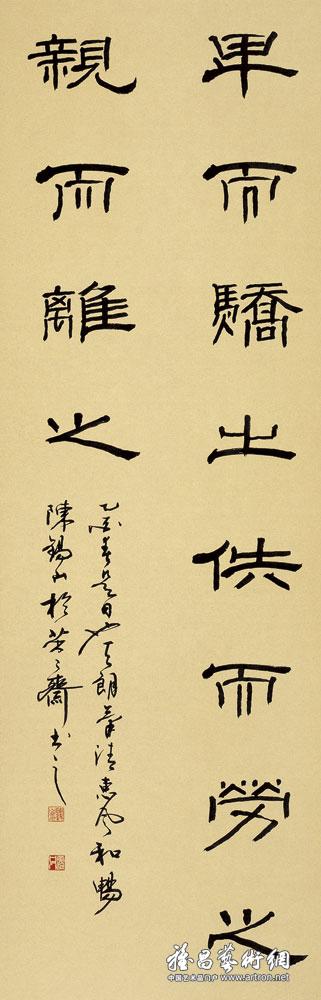 卑而驕之佚而勞之
親而離之
乙酉春是日也天朗氣清惠風和暢
陳錫山於芸齋書之
雅昌藝術網
中国艺术品门户 www.artron.net